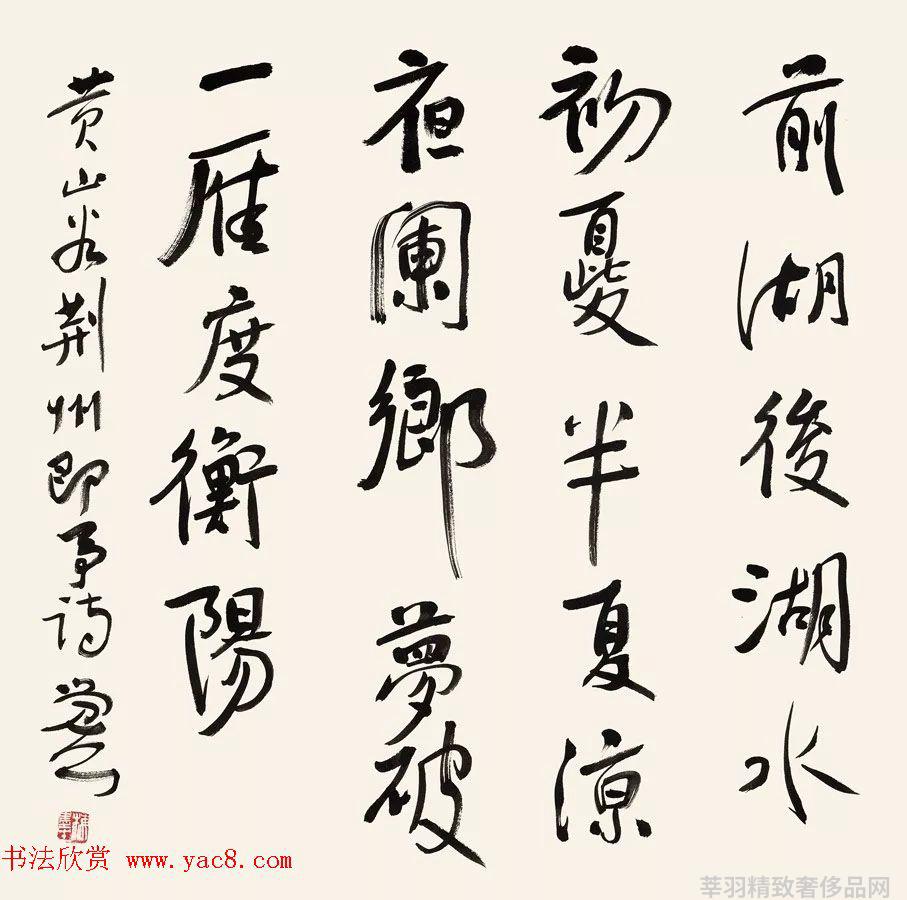 前湖後湖水
初夏半夏涼
夜闌鄉夢破
一雁度衡陽
黄山谷荆州即事詩
书法欣赏 www.yac8.com
莘羽精致奢侈品网